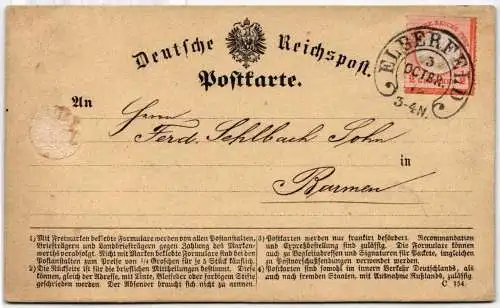 Deutsche Reichspost.
Postkarte.
ELBERFELD
3
OCTBR.
3-4N.
An
Herrn
Ferd. Sehlbach Sohn
in
Barmen
1) Mit Freimarken beklebte Formulare werden von allen Postanstalten,
Briefträgern und Landbriefträgern gegen Zahlung des Marken-
werths verabfolgt. Nicht mit Marken beklebte Formulare sind bei den
Postanstalten zum Preise von ¼ Groschen für je 5 Stück käuflich.
2) Die Rückseite ist für die brieflichen Mittheilungen bestimmt. Diese
können, gleich der Adresse, mit Tinte, Bleifeder oder farbigem Stift
geschrieben werden. Der Absender braucht sich nicht zu nennen.
3) Postkarten werden nur frankirt befördert. Recommandation
und Expreßbestellung sind zulässig. Die Formulare können
auch zu Begleitadressen und Signaturen für Packete, imgleichen
zu Postvorschußsendungen verwendet werden.
4) Postkarten sind sowohl im innern Verkehr Deutschlands, als
auch nach fremden Ländern, mit Ausnahme Rußlands, zulässig.
C 154.